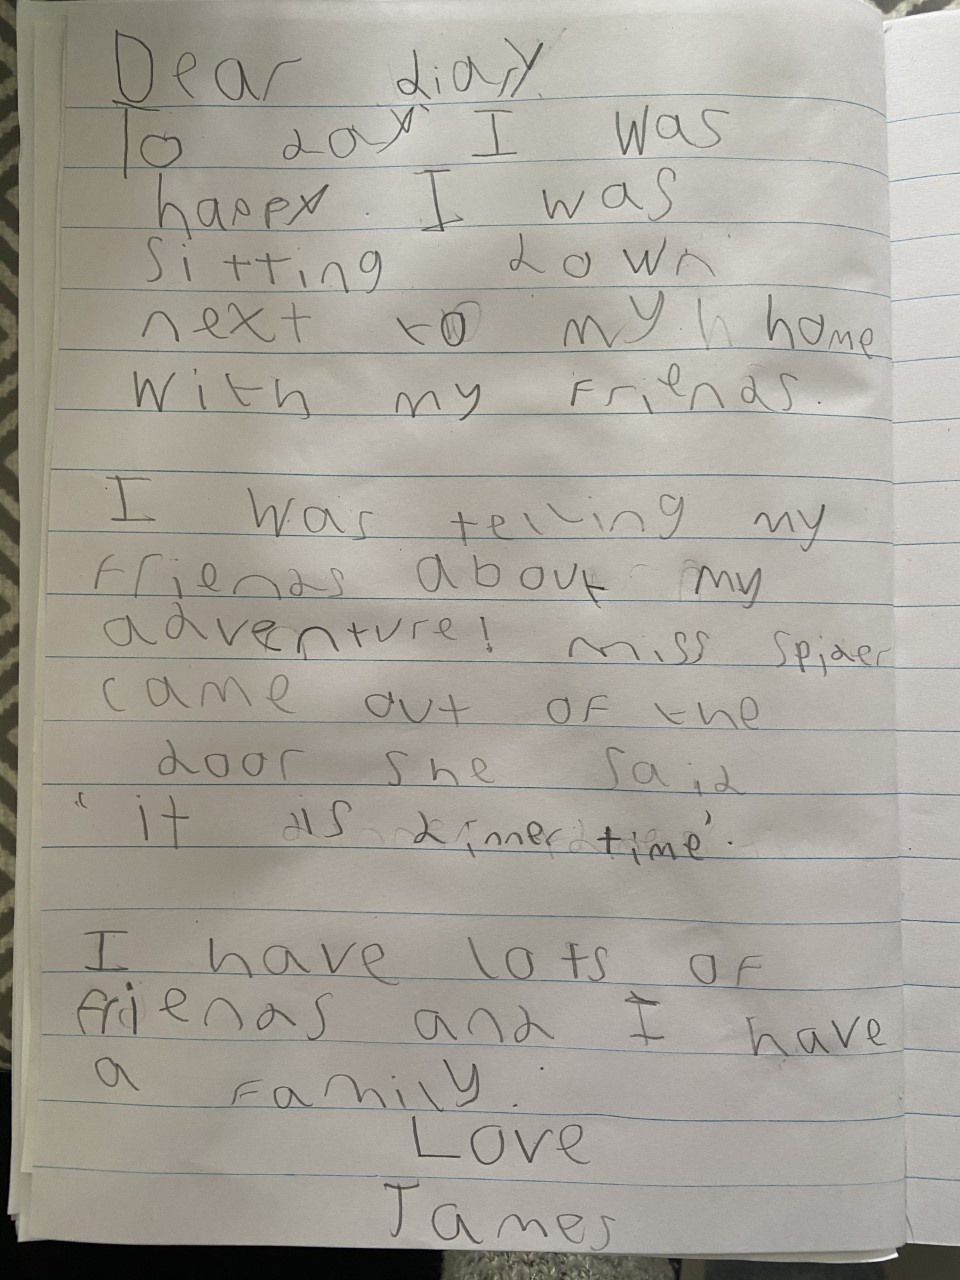 Dear diary.
To day I was
happy. I was
sitting down
next to my h home
with my friends.
I was telling my
friends about my
adventure! miss spider
came out of the
door she said
"it is dinner time".
I have lots of
friends and I have
a family.
Love
James